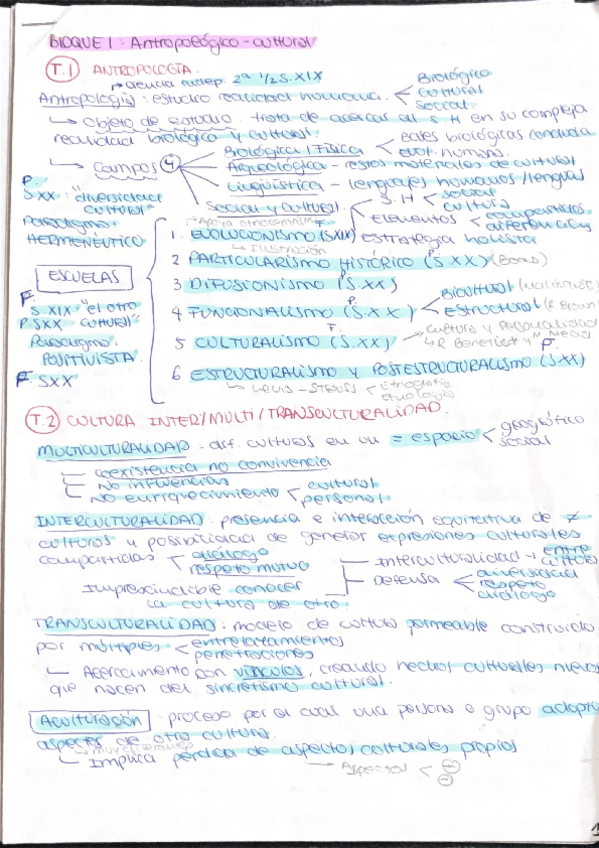 BLOQUE 1: Antropológico-cultural
T.1 ANTROPOLOGÍA.
→ Ciencia indep. 2ª 1/2 S.XIX
Antropología: estudio realidad humana. < Biológico
cultural
social.
→ Objeto de estudio: trata de acercar al S.H en su compleja
realidad biológica y cultural.
→ Campos 4
Biológica / Física < bases biológicas conducta
evol. humana.
Arqueológica - restos materiales de cultural
Lingüística - lenguajes humanos/lenguas
Social y cultural. < S.H < social
cultura
Elementos < compartidos
diferenciales
P.
SXX: "diversidad
cultural"
Paradigma.
HERMENÉUTICO
ESCUELAS
F.
S XIX "el otro
P. SXX cultural"
Paradigma
POSITIVISTA.
F SXX
→ Apoya etnocentrismo F.
1. EVOLUCIONISMO (SXIX) estrategia holista
↳ Ilustración
2 PARTICULARISMO HISTÓRICO (S.XX) (Boas)
P.
3 DIFUSIONISMO (S.XX)
P.
4 FUNCIONALISMO (S.XX) < Biocultural (Malinowski)
Estructural (R Brown)
F.
5 CULTURALISMO (S.XX). - Cultura y Personalidad
↳ R Benedict y M Mead
P.
6 ESTRUCTURALISMO y POSTESTRUCTURALISMO (SXX)
↳ Levis-Strauss < Etnografía
etnología
T.2 CULTURA INTER/MULTI/TRANSCULTURALIDAD.
MULTICULTURALIDAD: dif. culturas en un = espacio < geográfico
social
- coexistencia no convivencia
- No influencias
- No enriquecimiento < cultural
personal.
INTERCULTURALIDAD: presencia e interacción equitativa de ≠
culturas y posibilidad de generar expresiones culturales
compartidas < diálogo
respeto mutuo
Imprescindible conocer
la cultura de otro
Interculturalidad → entre
culturas
Defensa < diversidad
respeto
diálogo
TRANSCULTURALIDAD: modelo de cultura permeable construido
por múltiples < entrelazamientos
penetraciones
↳ Acercamiento con vínculos, creando hechos culturales nuevos
que nacen del sincretismo cultural.
Aculturación proceso por el cual una persona o grupo adopta
aspectos de otra cultura.
↳ Implica pérdida de aspectos culturales propios
→ Aspectos < +
-
1